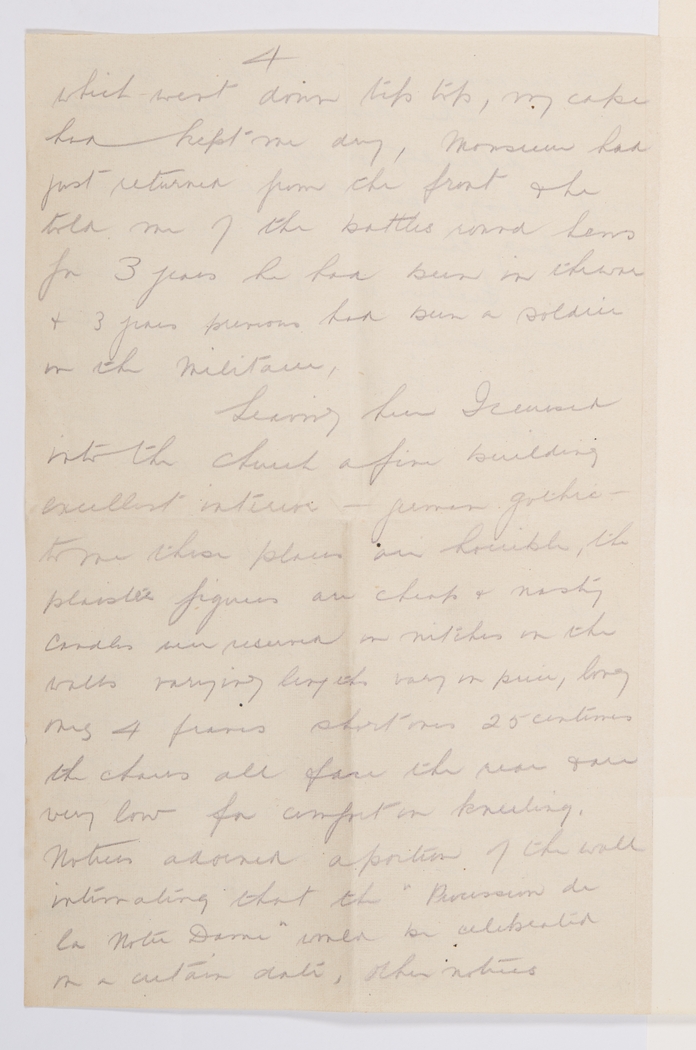 4
which went down tip top, my cape
had kept me dry, Monsieur had
just returned from the front & he
told me of the battles round Lens
for 3 years he had been in the war
& 3 years previous had been a soldier
in the Militaire,
Leaving here I cruised
into the church a fine building
excellent interior — german gothic —
to me these places are horrible, the
plaister figures are cheap & nasty
candles were reserved in nitches in the
walls varying lengths vary in price, long
ones 4 francs short ones 25 centimes
the chairs all face the rear & are
very low for comfort in kneeling.
Notices adorned a portion of the wall
intimating that the "Procession de
la Notre Dame" would be celebrated
on a certain date, other notices